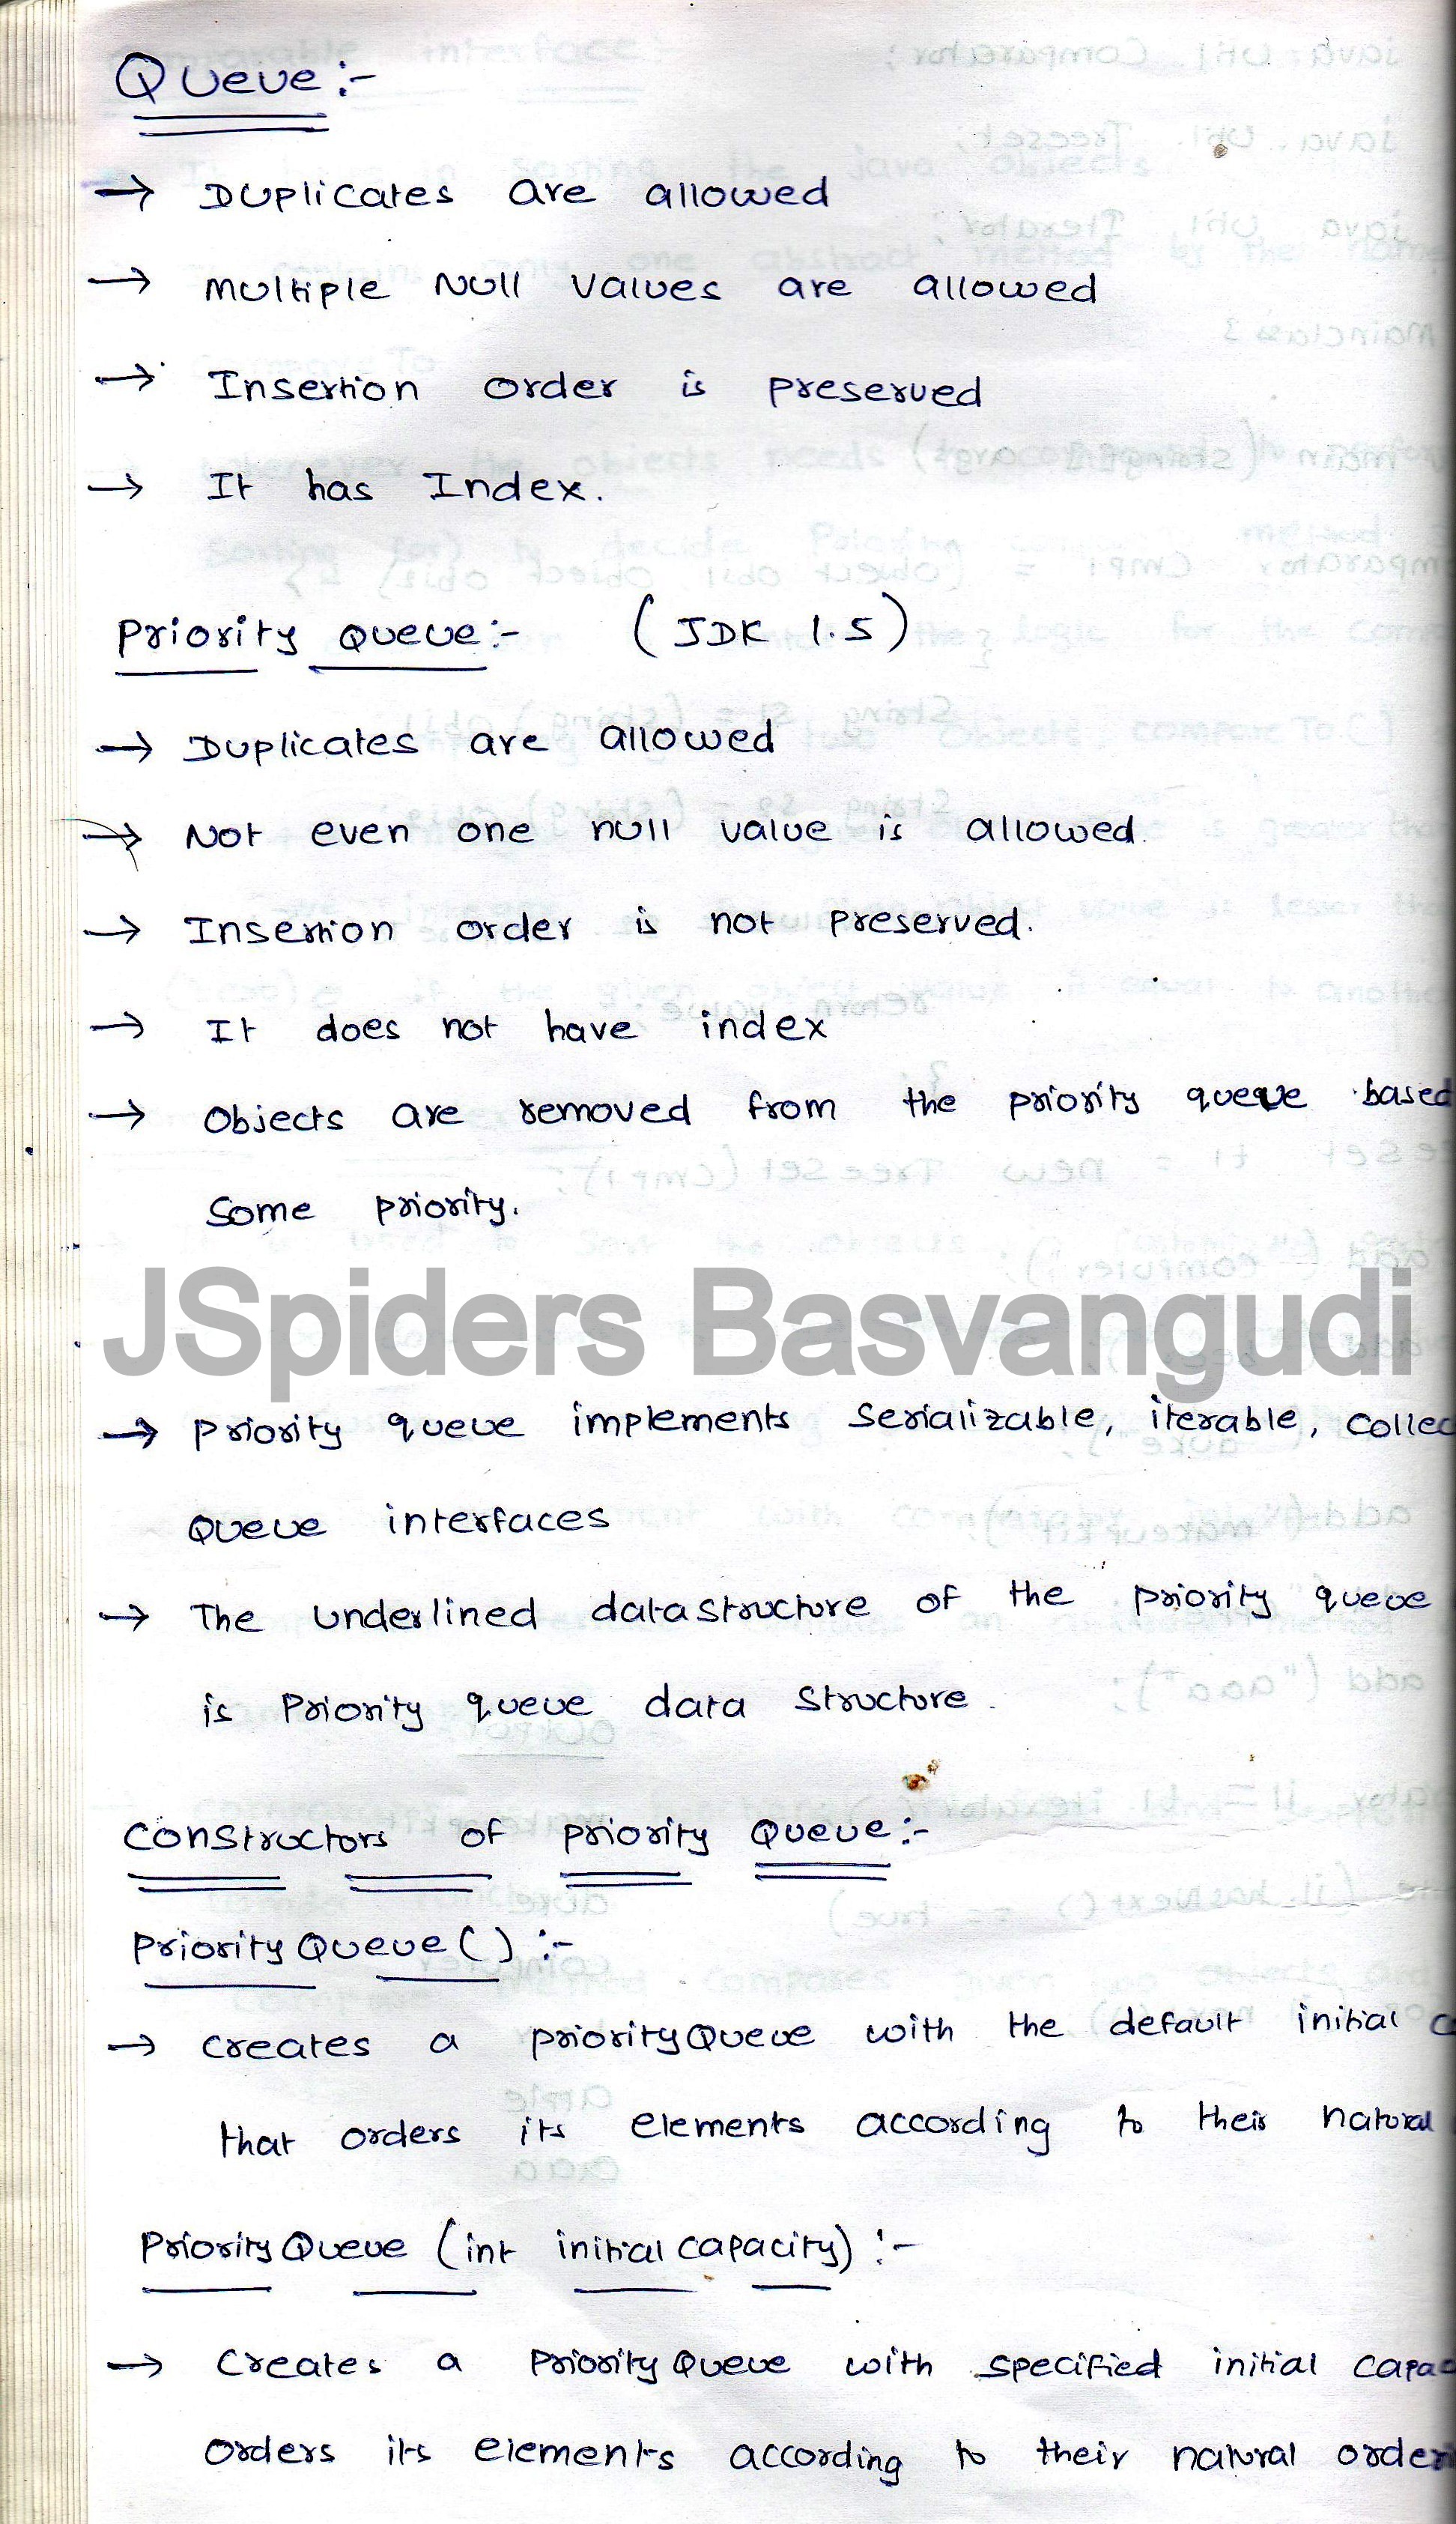 Queue:-
→ Duplicates are allowed
→ Multiple Null values are allowed
→ Insertion order is preserved
→ It has Index.
Priority Queue:- (JDK 1.5)
→ Duplicates are allowed
→ Not even one null value is allowed.
→ Insertion order is not preserved.
→ It does not have index
→ Objects are removed from the priority queue based
some priority.
JSpiders Basvangudi
→ Priority queue implements Serializable, iterable, collec
Queue interfaces
→ The underlined datastructure of the priority queue
is Priority queue data structure.
Constructors of Priority Queue:-
PriorityQueue() :-
→ creates a priorityQueue with the default initial
that orders its elements according to their natural
PriorityQueue (int initial capacity) :-
→ Creates a PriorityQueue with specified initial capac
orders its elements according to their natural order